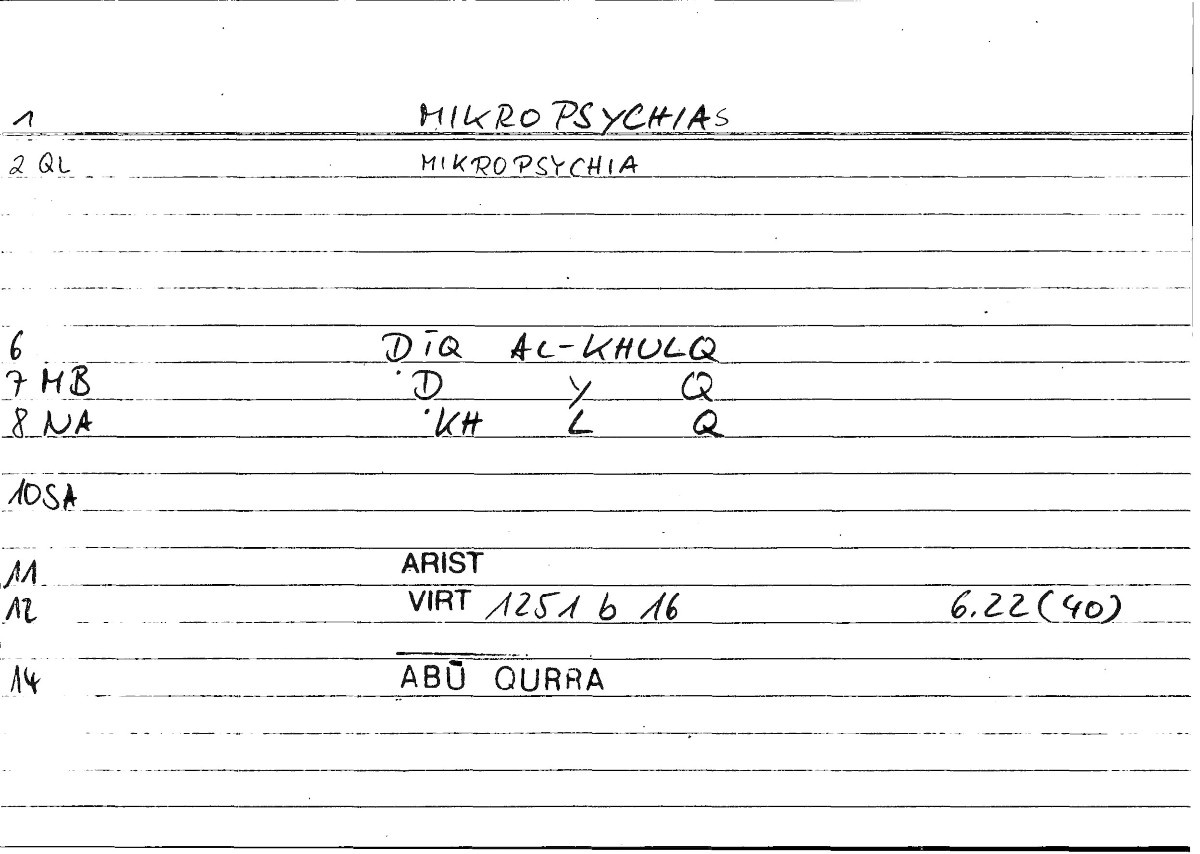 1 MIKROPSYCHIAS
2 QL MIKROPSYCHIA
6 DĪQ AL-KHULQ
7 MB ·D Y Q
8 NA ·KH L Q
10 SA
11 ARIST
12 VIRT 1251 b 16 6.22 (40)
14 ABŪ QURRA